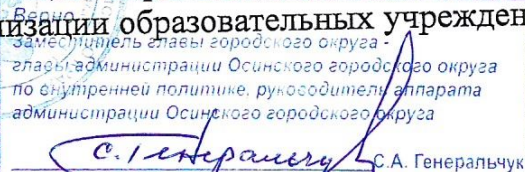 Верно
низации образовательных учрежден
Заместитель главы городского округа -
главы администрации Осинского городского округа
по внутренней политике, руководитель аппарата
администрации Осинского городского округа
С. Генеральчук
С.А. Генеральчук